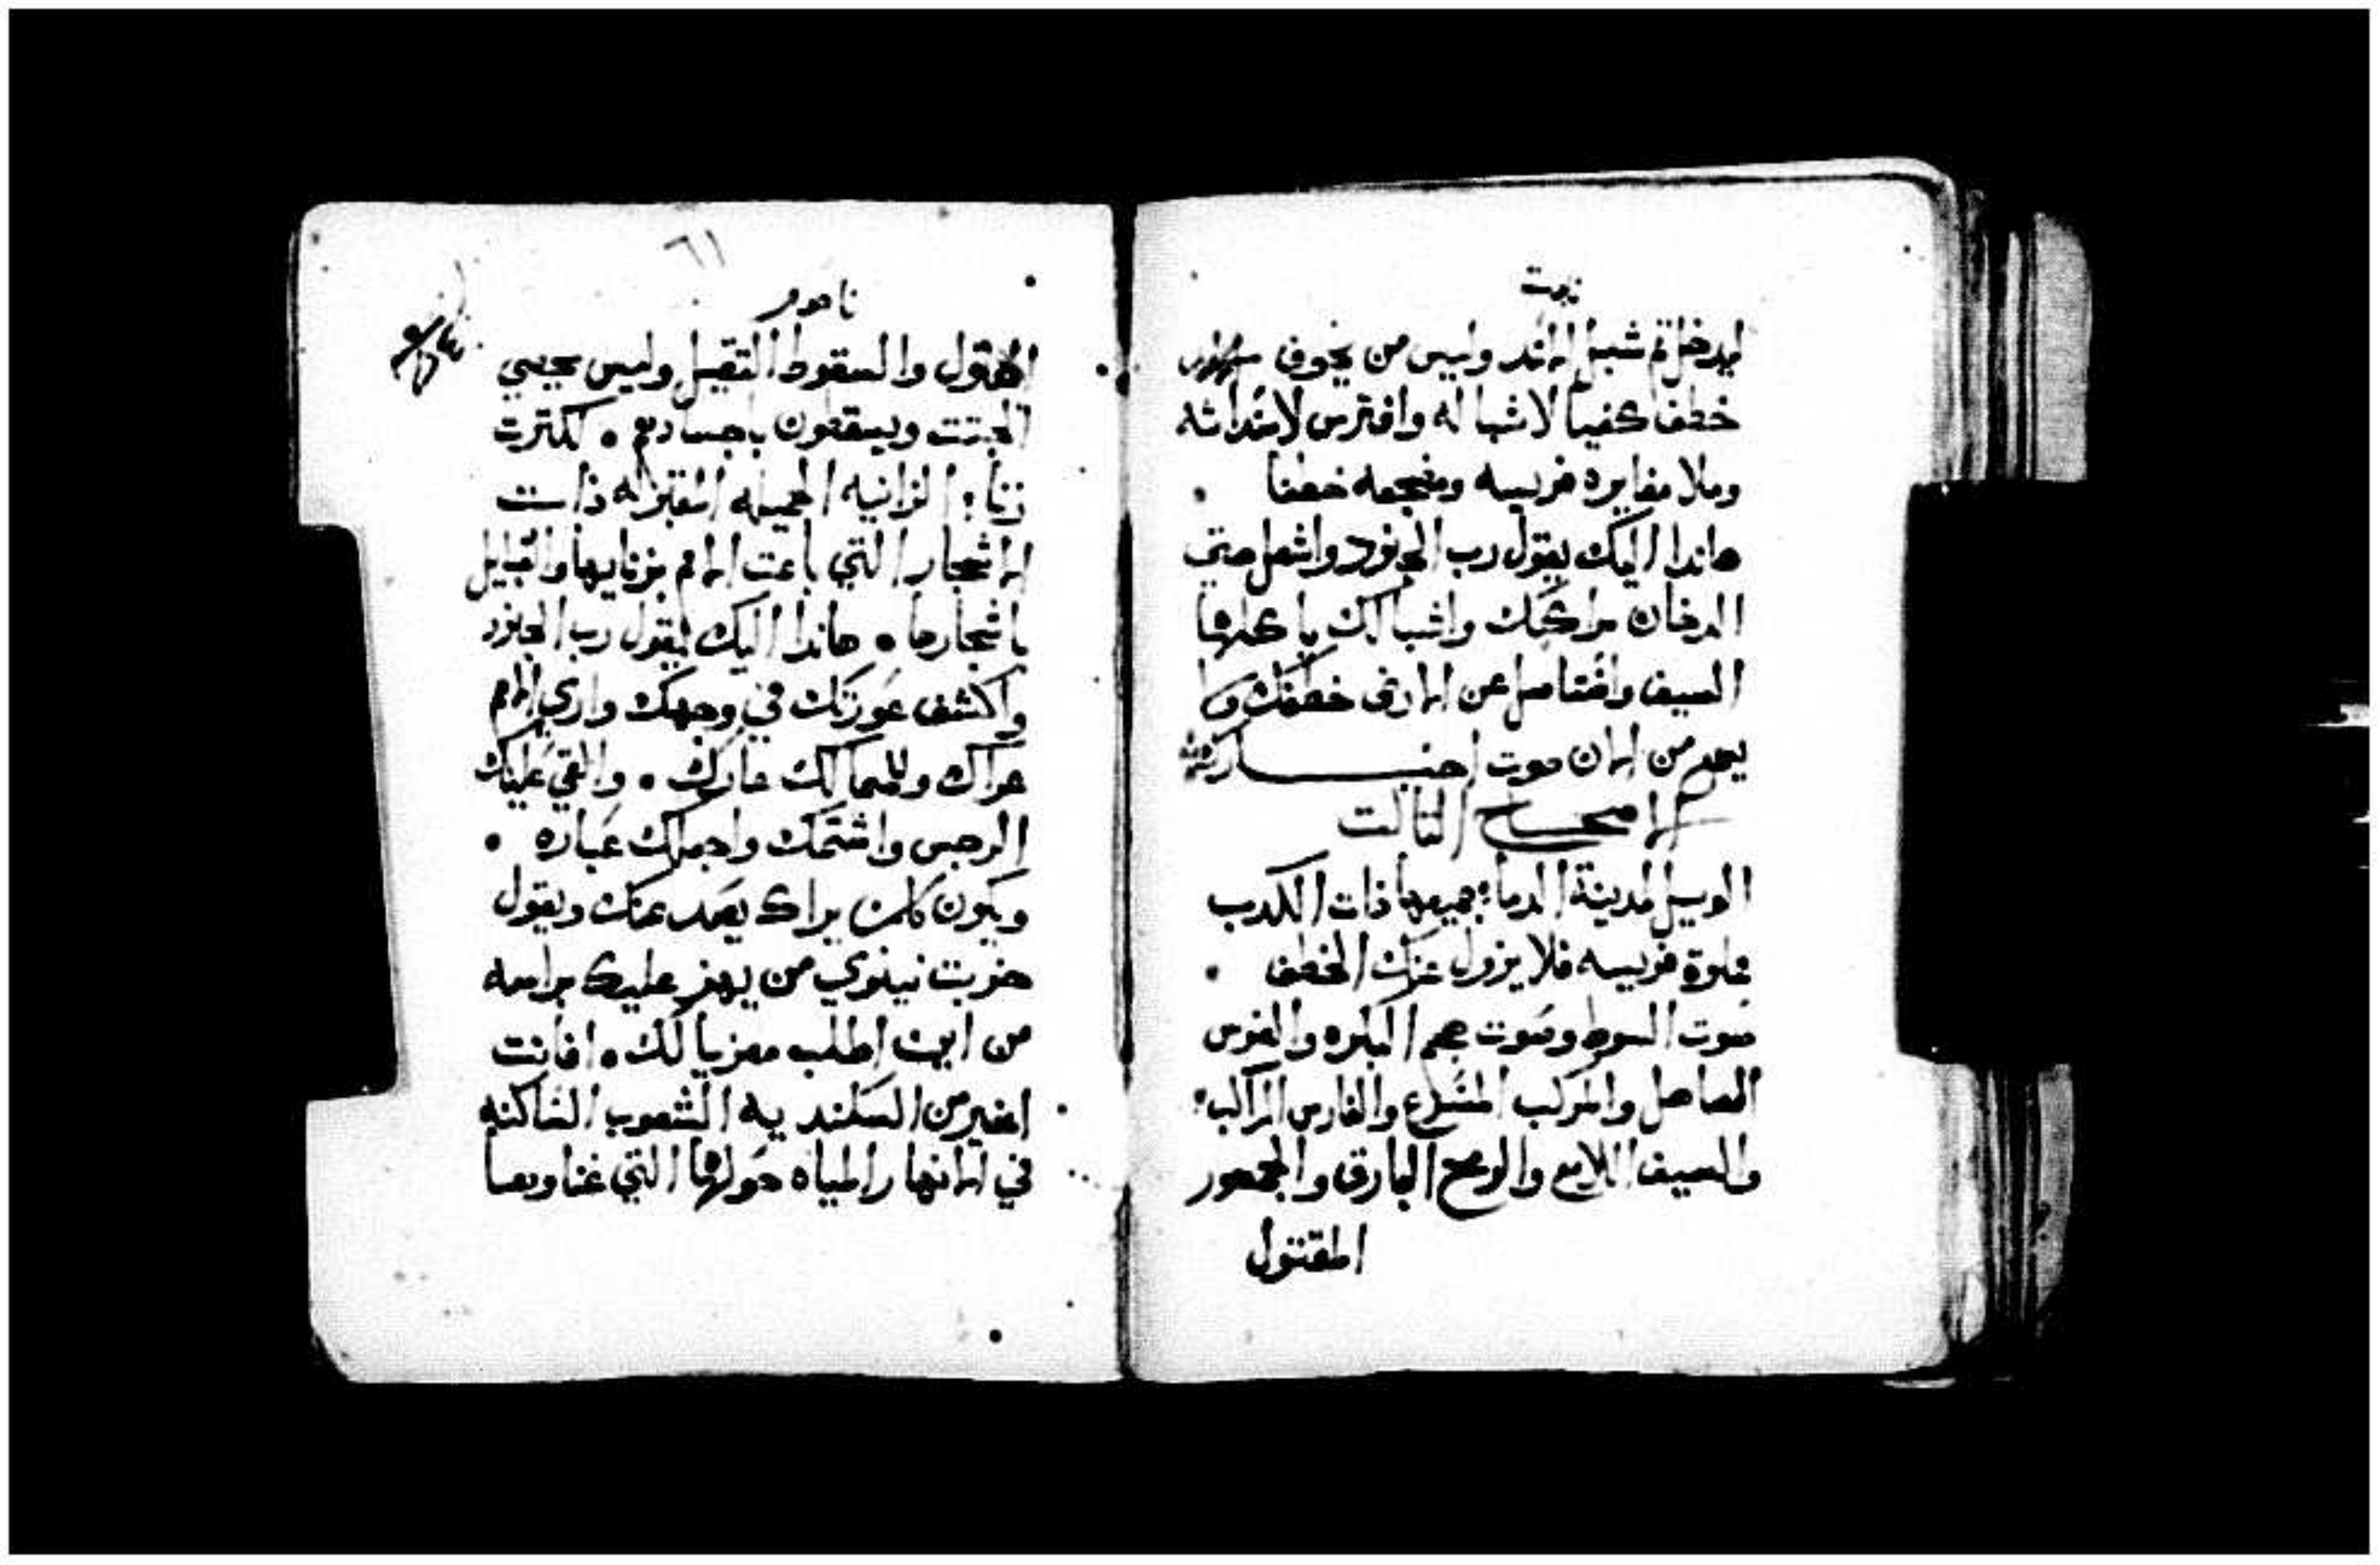 نبوت
ليدخل ثم شبل الاسد وليس من يخوف
خطف كفيا لاشباله وافترس لاسداته
وملا مغايره فريسه ومضجعه خطفا
هاندا اليك يقول رب الجنود واشعل حتي
الدخان مراكبك واشبالك ياكلها
السيف واستاصل عن الارض خطفك ولا
يعد من الان صوت
الاصحاح التالت
الويل لمدينة الدما جميعها ذات الكدب
مملوة فريسه فلا يزول عنك الخطف
صوت السوط وصوت عجم البكره والفرس
الصاهل والمركب المسرع والفارس الراكب
والسيف اللامع والرمح البارق والجمهور
المقتول
٦١
ناحوم
المقتول والسقوط التقيل وليس يحصي
الجتت ويسقطون باجسادهم ٠ لكترت
زنا الزانيه الجميله المقبوله ذات
الاسحار التي باعت الامم بزنايها والقبايل
باسحارها ٠ هاندا اليك يقول رب الجنود
واكشف عورتك في وجهك واري الامم
عراك وللممالك عارك ٠ والقي عليك
الرجس واشتمك واجعلك عباره ٠
ويكون كلمن يراك يبعد عنك ويقول
خربت نينوي من يهز عليك براسه
من اين اطلب معزيا لك ٠ افانت
اخير من السكندريه الشعوب الساكنه
في الانهار المياه حولها التي غناوها